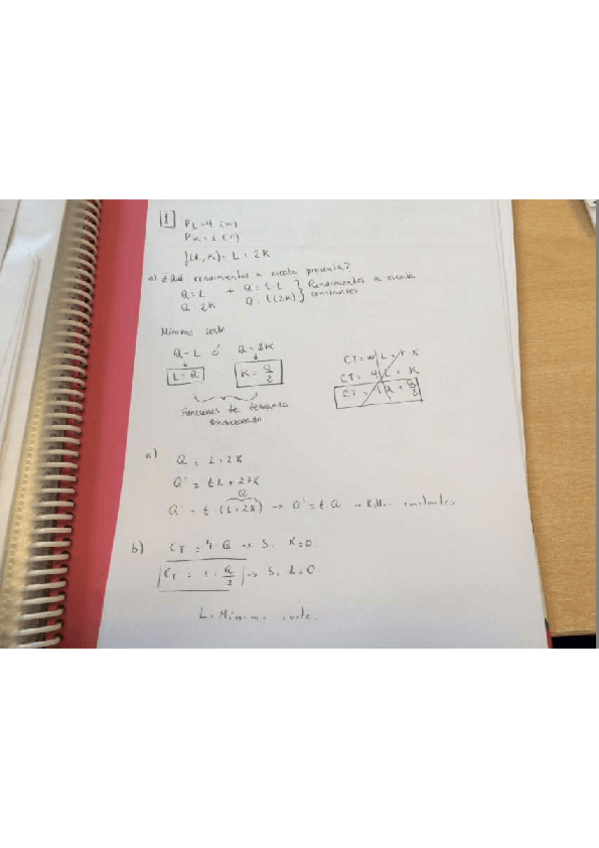 1 PL=4 (w)
PK=1 (r)
f(L,K)= L + 2K
a) ¿Qué rendimientos a escala presenta?
Q=L + Q'= t·L } Rendimientos a escala
Q=2K Q'= t(2K) } constantes
Mínimo coste
Q=L ó Q=2K
L=Q K=Q/2
Funciones de demanda
condicionada
CT=w·L+r·K
CT=4·L+K
CT=4Q+Q/2
a) Q = L+2K
Q' = tL+2tK
Q
Q' = t·(L+2K) → Q'=t·Q → constantes
b) CT = 4·Q → S. K=0
CT = 1·Q/2 → S. L=0.
L→Mínimo coste.